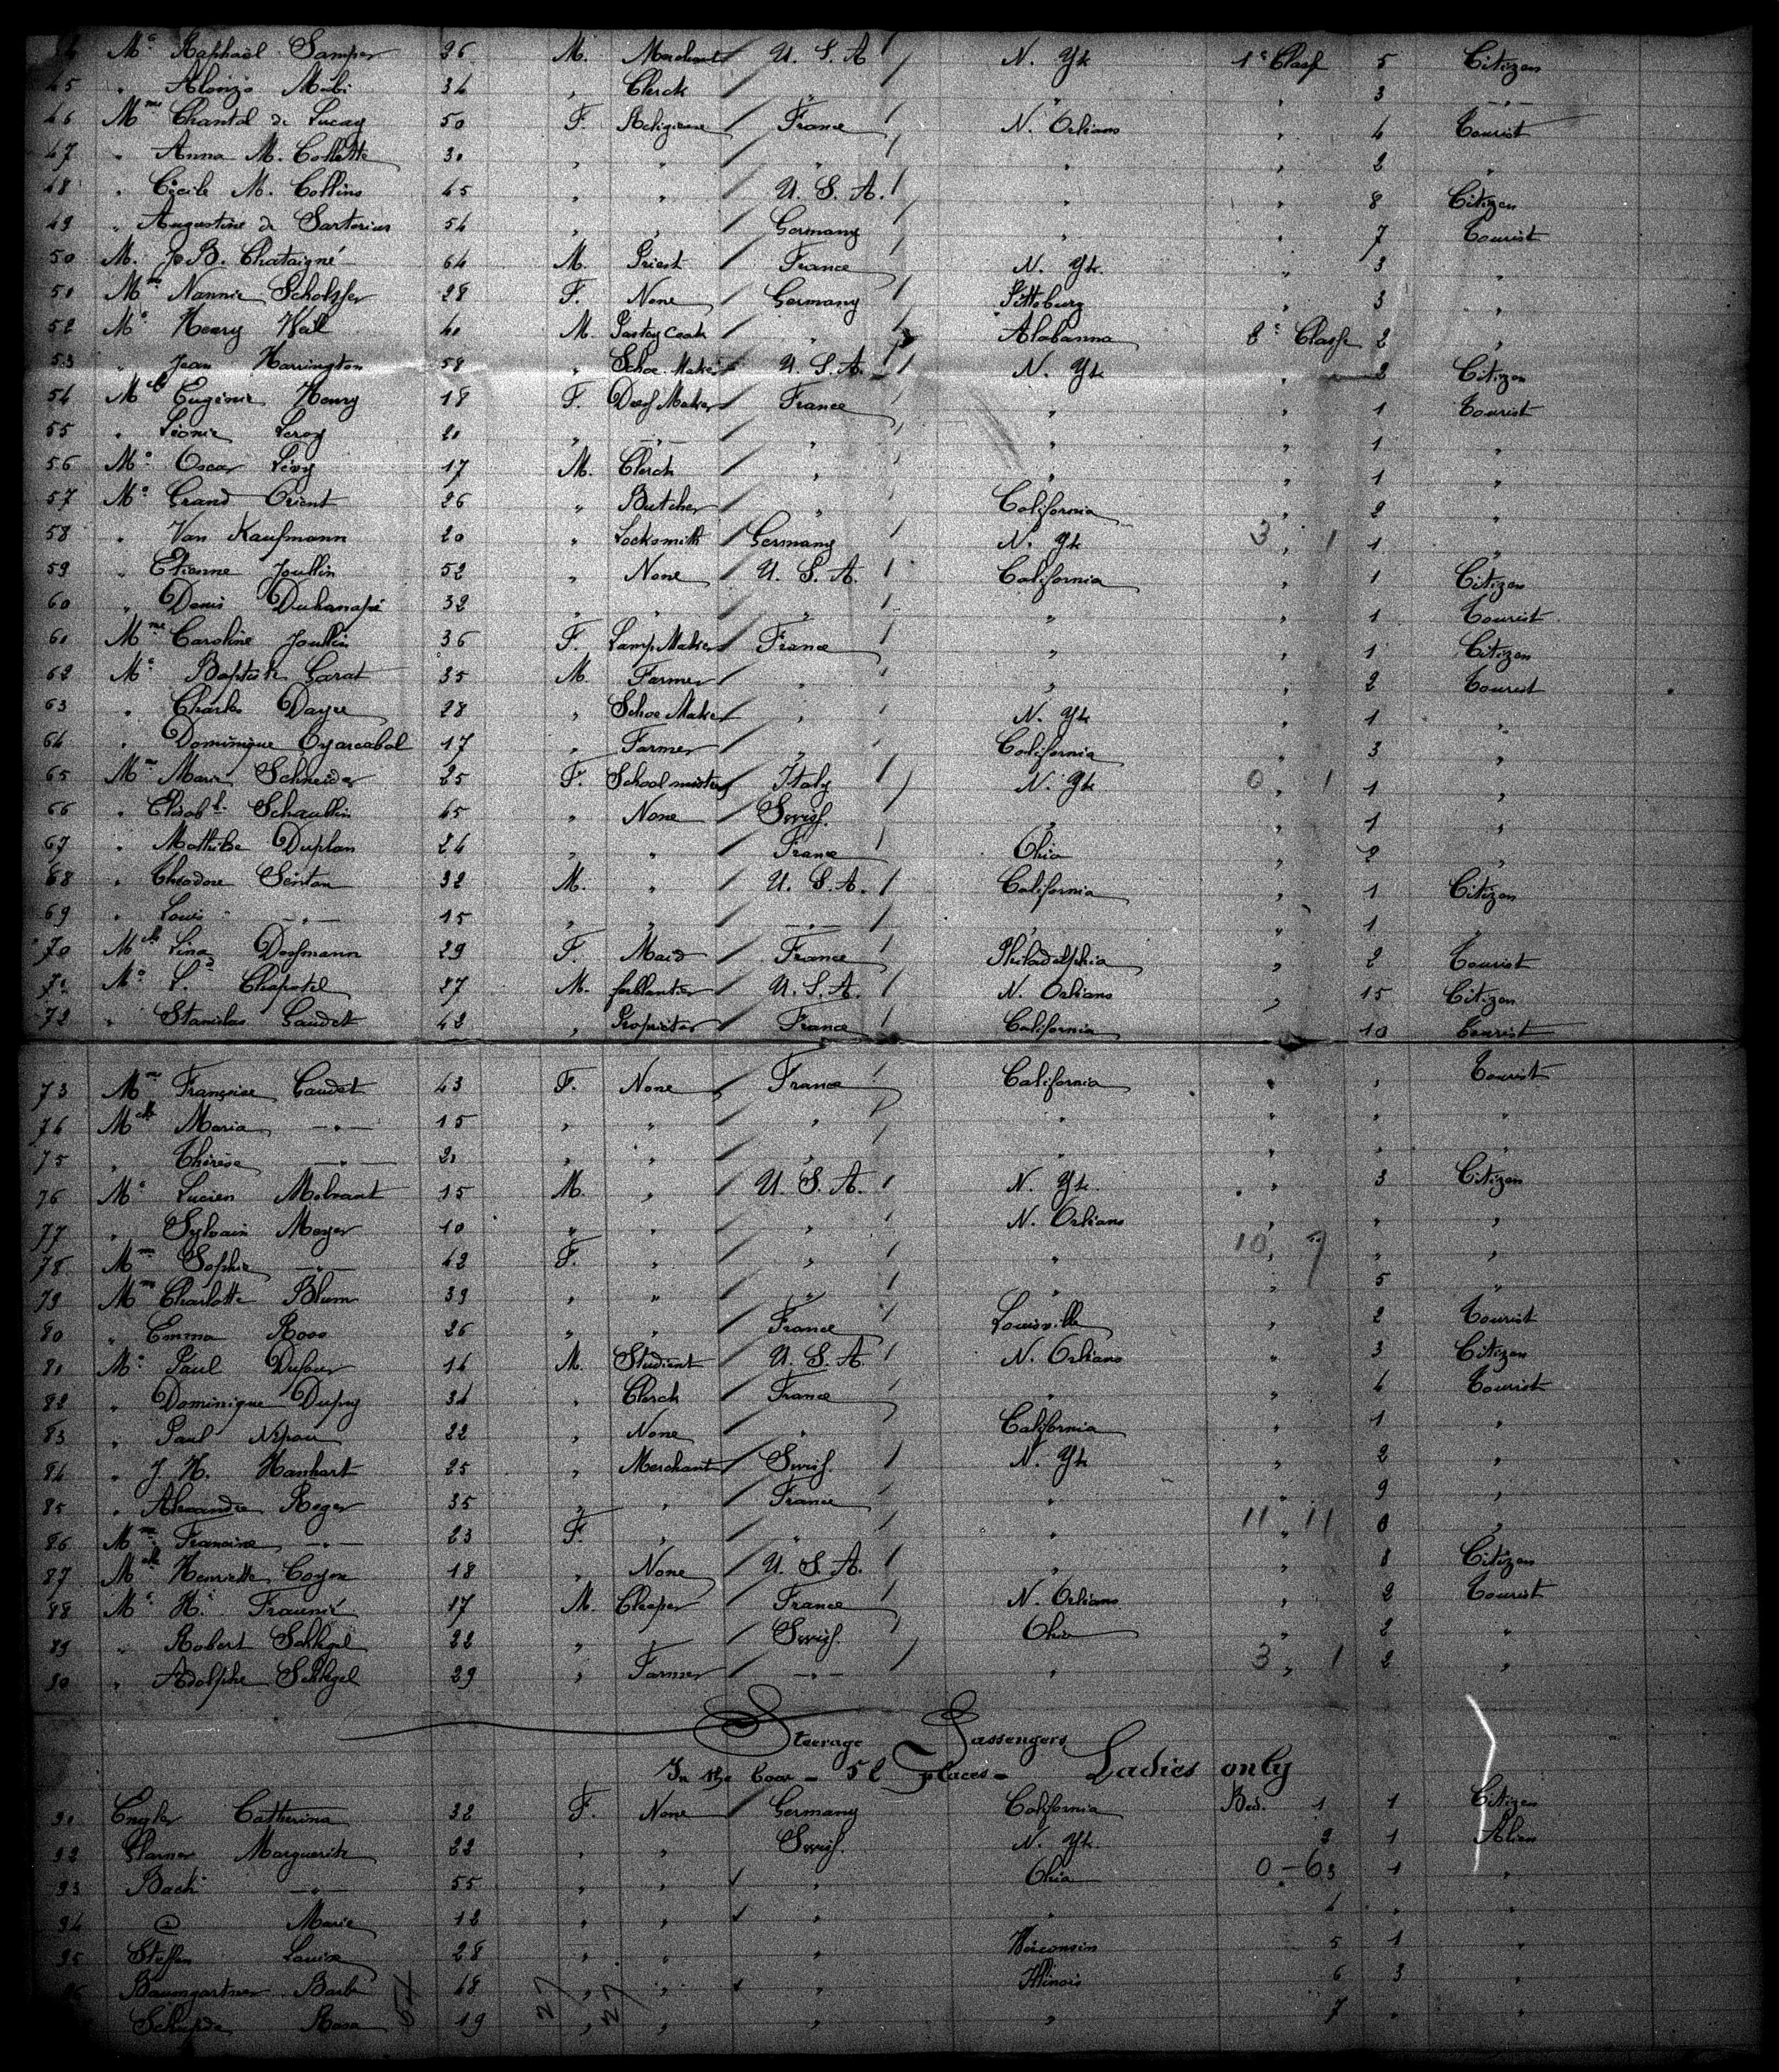 Mr Raphaël Samper 26 M. Merchant U. S. A N. Yk 1e Class 5 Citizen
45 " Alonzo 34 " Clerck " " " 3 "
46 Mme Chantal de Lucay 50 F. Religieuse France N. Orleans " 4 Tourist
47 " Anna M. Collette 30 " " " " " 2 "
48 " Cécile M. Collins 45 " " U. S. A. " " 8 Citizen
49 " Augustine de Sartorius 54 " " Germany " " 7 Tourist
50 M. J. B. Chataigné 64 M. Priest France N. Yk. " 3 "
51 Mme Nannie 28 F. None Germany Pittsburg " 3 "
52 Mr Henry Weil 40 M. " Alabanna 2e Class 2 "
53 " Jean Harrington 58 " Schoe Maker U. S. A. N. Yk " 2 Citizen
54 Mlle Eugénie Henry 18 F. Dress Maker France " " 1 Tourist
55 " Léonie Leroy 20 " " " " " 1 "
56 Mr Oscar Lévy 17 M. Clerck " " " 1 "
57 Mr Grand Orient 26 " Butcher " California " 2 "
58 " Van Kaufmann 20 " Locksmith Germany N. Yk 3 " 1 1 "
59 " Etienne Joullin 52 " None U. S. A. California " 1 Citizen
60 " Denis 32 " " " " " 1 Tourist
61 Mme Caroline Joullin 36 F. Lamp Maker France " " 1 Citizen
62 Mr Baptiste Garat 35 M. Farmer " " " 2 Tourist
63 " Charles 28 " Schoe Maker " N. Yk " 1 "
64 " Dominique Oyarcabal 17 " Farmer " California " 3 "
65 Mme Marie Schneider 25 F. School Italy N. Yk 0 " 1 1 "
66 " Schaullin 65 " None Swiss. " " 1 "
67 " Mathilde Duplan 24 " " France Ohio " 2 "
68 " Théodore 32 M. " U. S. A. California " 1 Citizen
69 " Louis " 15 " " " " " 1 "
70 Mlle Lina 29 F. Maid France Philadelphia " 2 Tourist
71 Mr L. Chapotel 27 M. U. S. A. N. Orleans " 15 Citizen
72 " Stanislas Gaudet 42 " Proprietor France California 10 Tourist
73 Mme Françoise Gaudet 43 F. None France California " " Tourist
74 Mlle Maria " 15 " " " " " " "
75 " Thérèse " 20 " " " " " " "
76 Mr Lucien 15 M. " U. S. A. N. Yk. " 3 Citizen
77 " Sylvain Meyer 10 " " " N. Orleans " " "
78 Mme Sophie " 42 F. " " " 10 " 9 " "
79 Mme Charlotte Blum 39 " " " " " 5 "
80 " Emma Roos 26 " " France Louisville " 2 Tourist
81 Mr Paul Dufour 14 M. Student U. S. A. N. Orleans " 3 Citizen
82 " Dominique Dupuy 34 " Clerck France " " 4 Tourist
83 " Paul 22 " None " California " 1 "
84 " J. H. Hanhart 25 " Merchant Swiss. N. Yk " 2 "
85 " Alexandre Roger 35 " " France " " 9 "
86 Mme Francine " 23 F. " " " 11 " 11 0 "
87 Mlle Henriette 18 " None U. S. A. " " 8 Citizen
88 Mr H. 17 M. France N. Orleans " 2 Tourist
89 " Robert Schlegel 22 " " Swiss. Ohio " 2 "
90 " Adolphe Schlegel 29 " Farmer " " 3 " 1 2 "
Steerage Passengers
In the bow - 52 places - Ladies only
91 Engler Catherina 32 F. None Germany California Bed. 1 1 Citizen
92 Marguerite 22 " " Swiss. N. Yk. 2 1 Alien
93 Bach " 55 " " " Ohio 0-6 3 1 "
94 Marie 12 " " " " 4 " "
95 Steffen Louise 28 " " " Wisconsin 5 1 "
96 Baumgartner Barb. 48 " " " Illinois 6 3 "
Rosa 19 " " " " 7 " "
27 27